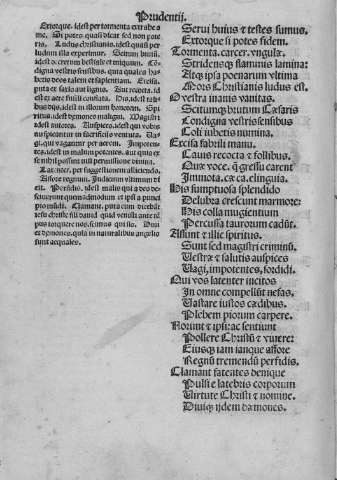 Prudentij.
Extorque. idest per tormenta extrahe a
me. Si potes. quasi dicat sed non pote
ris. Ludus christianis. idest quasi per lu
dum illa experimur. Scitum brutū.
idest decretum bestiale et iniquum. Cō
digna vestris sensibus. quia qualia ha
betis deos talem et sapientiam. Excisa.
puta ex saxo aut lignis. Aut recocta. id
est ex aere fusili conflata. His. idest talibus
dijs. idest in illorum honorem. Spi
ritus. idest demones maligni. Magistri
idest autores. Auspices. idest qui vobis
auspicantur in sacrificijs ventura. Va
gi. qui vagantur per aerem. Impoten
tes. idest in malum potentes. aut quia ex
se nihil possint nisi permissione diuina.
Latenter. per suggestionem aliciendo.
Norunt
Perfidis. idest malis qui a deo
Clamant. puta cum
tesu christe fili dauid quid venisti ante tē
pus torquere nos. scimus qui sis. Diui
et demones. quia in naturalibus angelis
sunt aequales.
Serui huius & testes sumus.
Extorque si potes fidem.
Tormenta. carcer. vngulæ.
Stridensq; flammis lamina:
Atq; ipsa poenarum vltima
Mors Christianis ludus est.
O vestra inanis vanitas.
Scitumq; brutum Cæsaris
Condigna vestris sensibus
Coli iubetis numina.
Excisa fabrili manu.
Cauis recocta & follibus.
Quæ voce. q̃ gressu carent
Immota. cæca. elinguia.
His sumptuosa splendido
Delubra crescunt marmore:
His colla mugientium
Percussa taurorum cadūt.
Assunt & illic spiritus.
Sunt sed magistri criminū.
Vestræ & salutis auspices
Vagi, impotentes, sordidi.
Qui vos latenter incitos
In omne compellūt nefas.
Vastare iustos cædibus.
Plebem piorum carpere.
Norunt & ipsi ac sentiunt
Pollere Christū & viuere:
Eiusq; iam iamque affore
Regnū tremendū perfidis.
Clamant fatentes denique
Pulsi e latebris corporum
Virtute Christi & nomine.
Diuiq; ijdem dæmones.